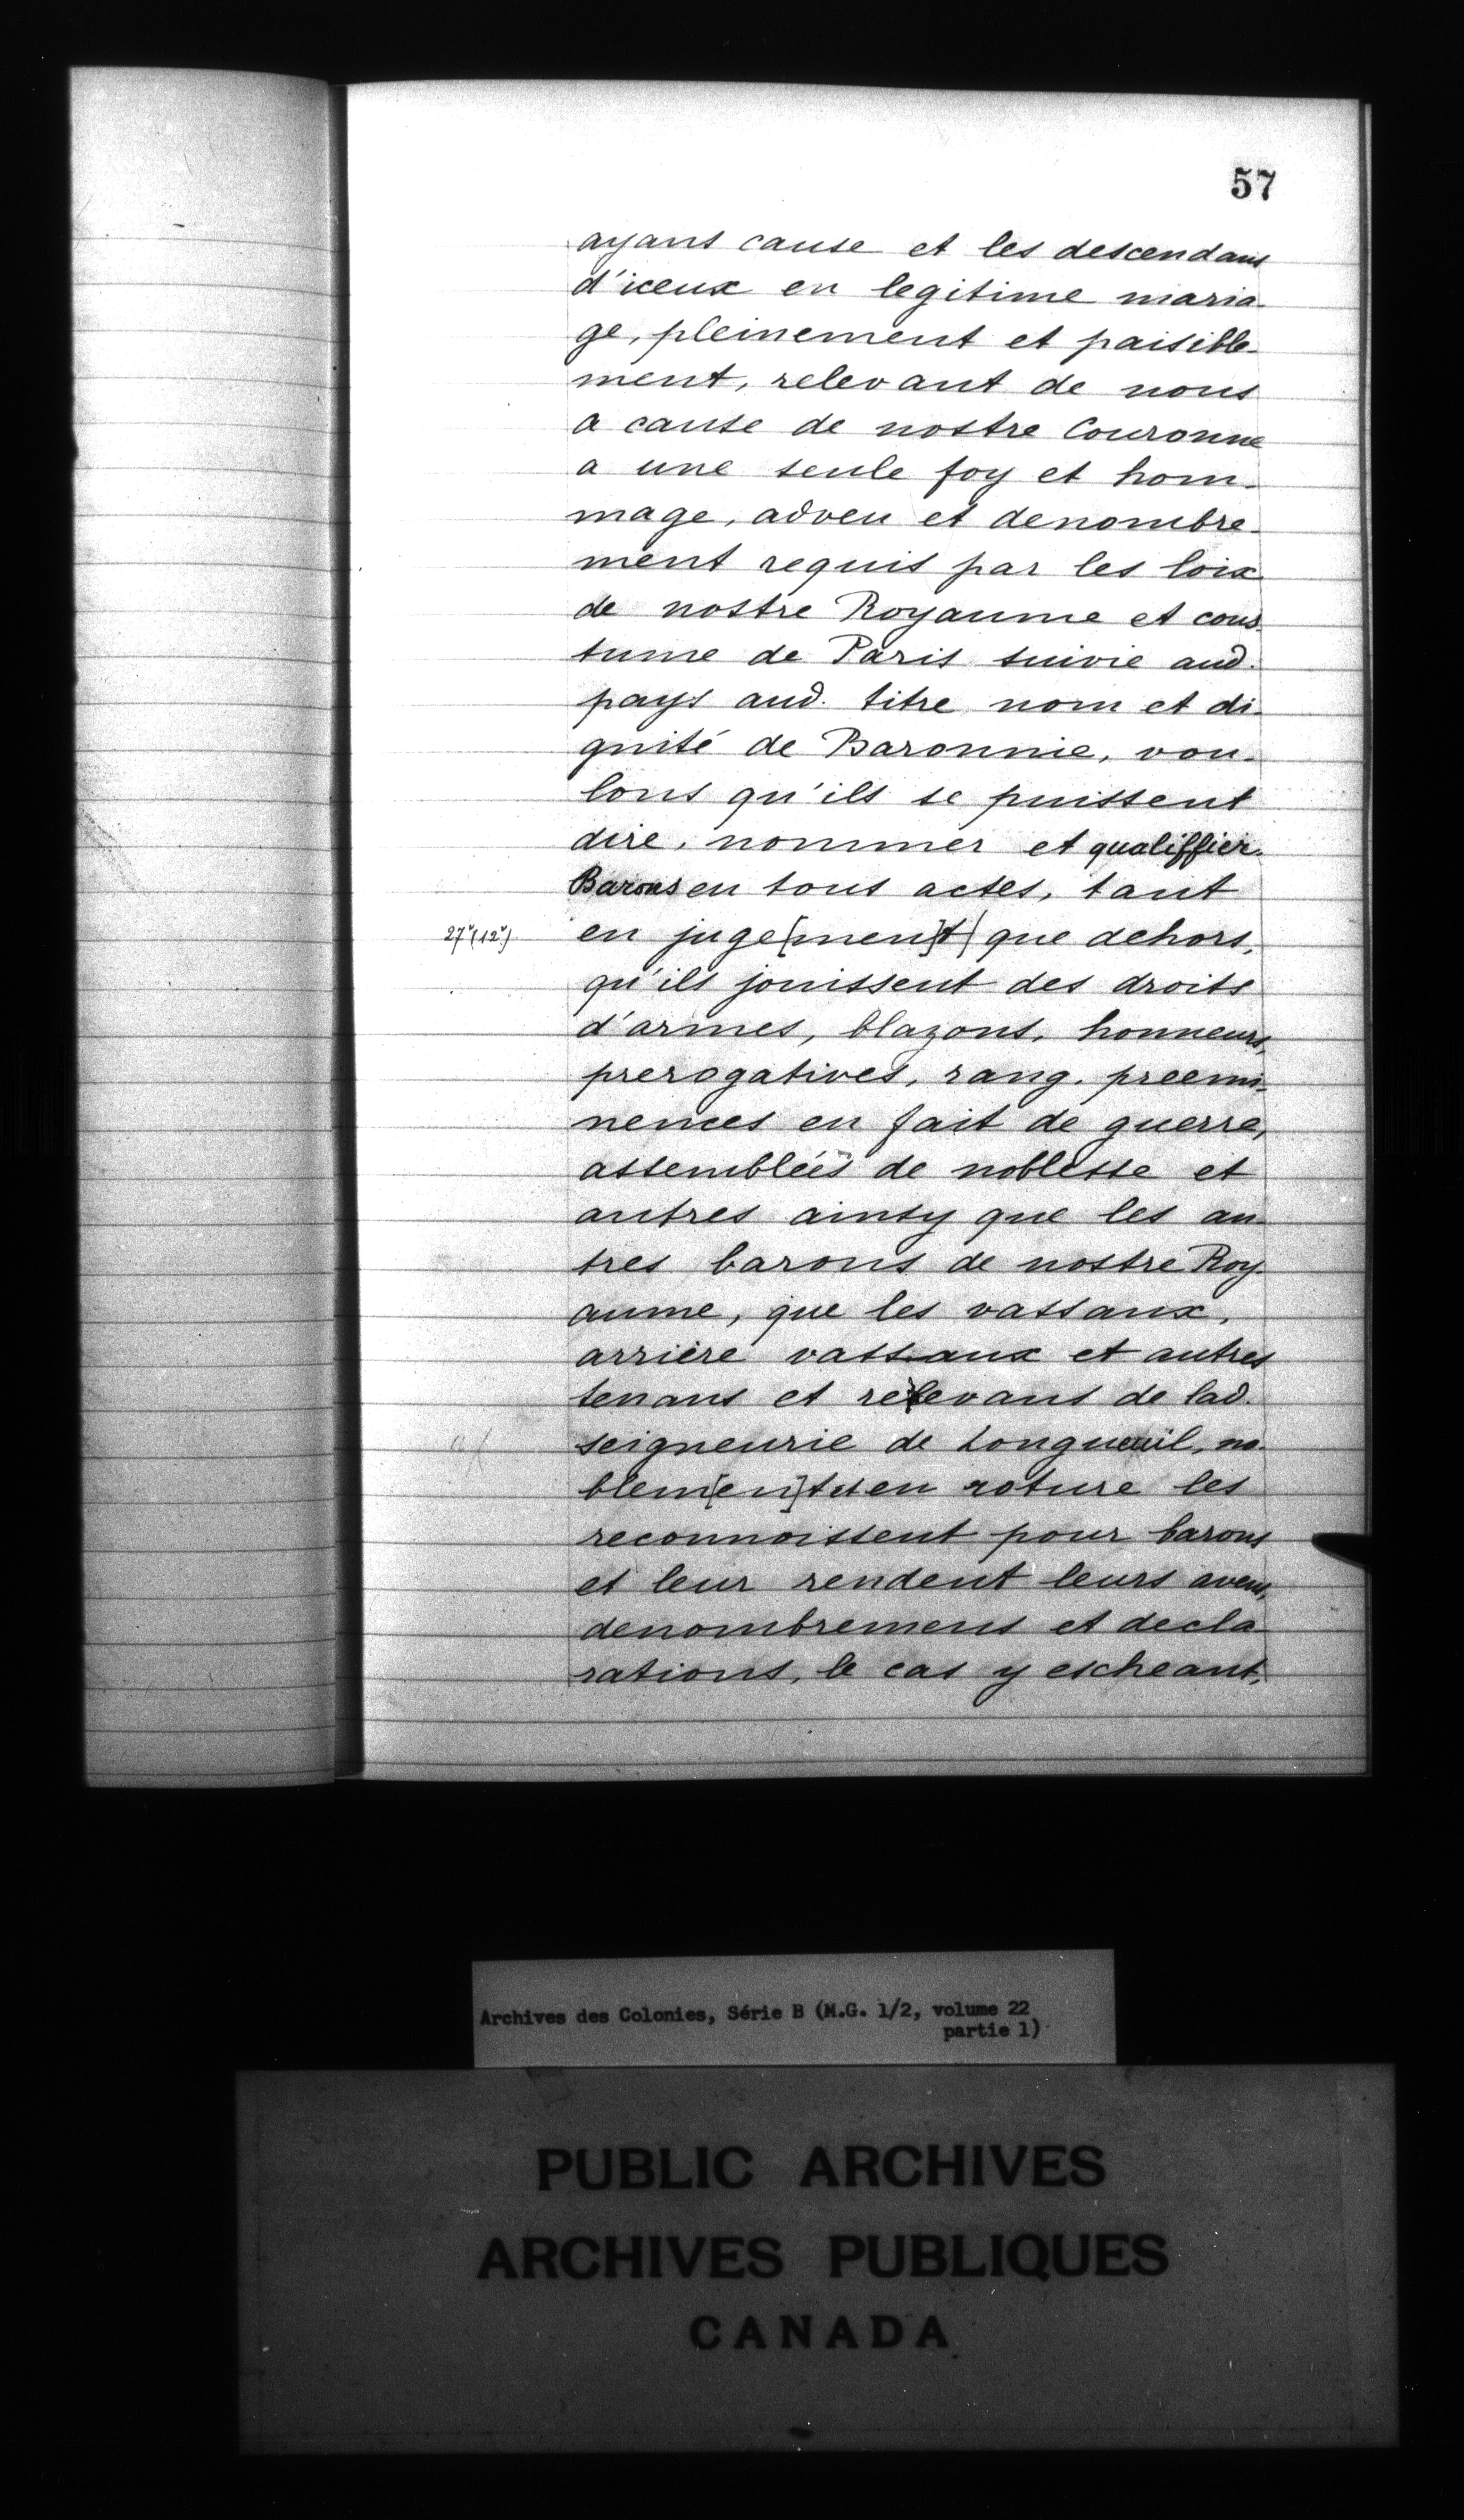 57
ayans cause et les descendans
d'iceux en legitime maria-
ge, pleinement et paisible-
ment, relevant de nous
a cause de nostre Couronne
a une seule foy et hom-
mage, adveu et denombre-
ment requis par les loix
de nostre Royaume et cous-
tume de Paris suivie aud.
pays aud. titre nom et di-
gnité de Baronnie, vou-
lons qu'ils se puissent
dire, nommer et qualiffier
Barons en tous actes, tant
27v (12v) en juge[men]t/ que dehors,
qu'ils jouissent des droits
d'armes, blazons, honneurs,
prerogatives, rang, preemi-
nences en fait de guerre,
assemblées de noblesse et
autres ainsy que les au-
tres barons de nostre Roy-
aume, que les vassaux,
arriere vassaux et autres
tenans et relevans de lad.
seigneurie de Longueuil, no-
blem[en]t et en roture les
reconnoissent pour barons
et leur rendent leurs aveus,
denombremens et decla-
rations, le cas y escheant,
Archives des Colonies, Série B (M.G. 1/2, volume 22
partie 1)
PUBLIC ARCHIVES
ARCHIVES PUBLIQUES
CANADA